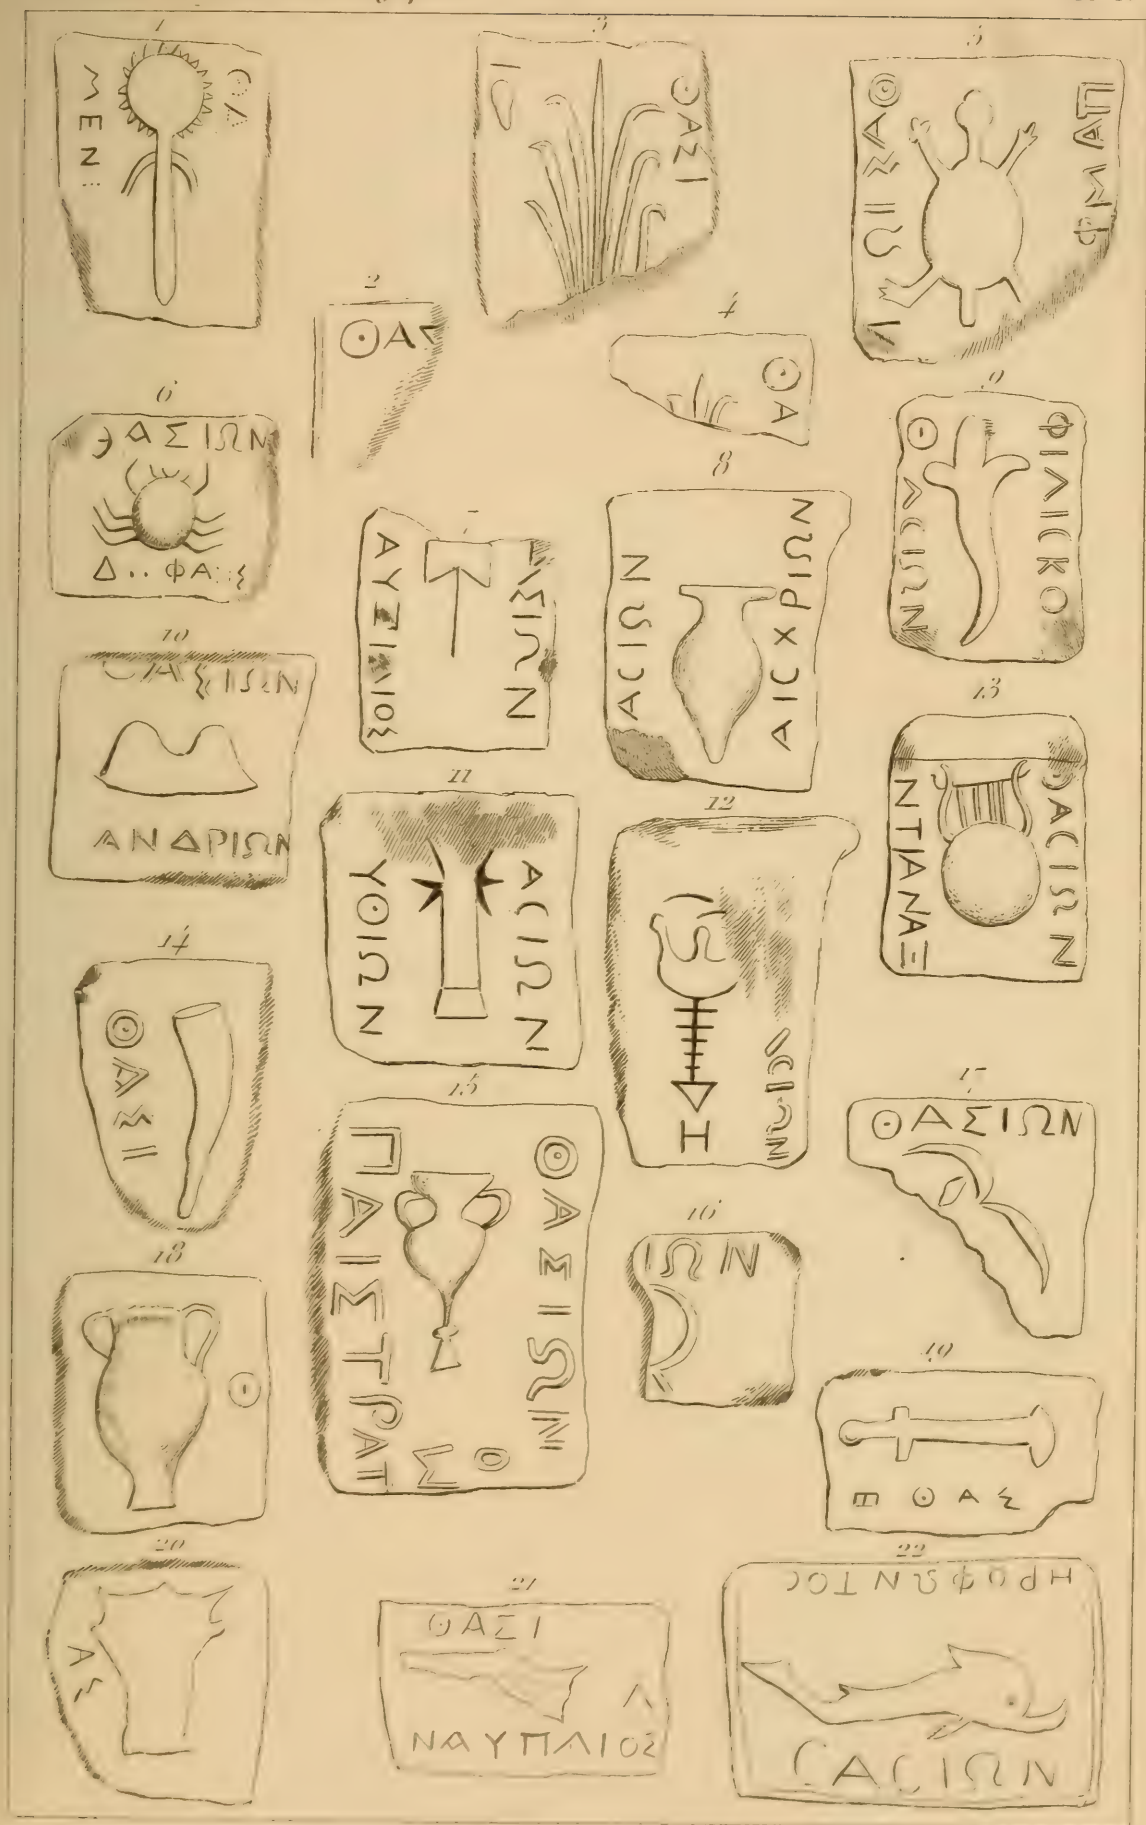 1
ΜΕΝ
ΘΑ
3
ΘΑΣΙ
5
ΘΑΣΙΩΝ
ΠΑΜΦ
2
ΘΑΣ
4
ΘΑ
6
ΘΑΣΙΩΝ
Δ..ΦΑ
7
ΑΥΞΙΜΙΟΣ
ΑΣΙΩΝ
8
ΑϹΙΩΝ
ΑΙϹΧΡΙΩΝ
9
ΘΑϹΙΩΝ
ΦΙΛΙϹΚΟ
10
ΘΑΣΙΩΝ
ΑΝΔΡΙΩΝ
11
ΥΘΙΩΝ
ΑϹΙΩΝ
12
ΑϹΙΩΝ
Η
13
ΝΤΙΑΝΑΞ
ΘΑϹΙΩΝ
14
ΘΑΣΙ
15
ΠΑΙΣΤΡΑΤ
ΘΑΣΙΩΝ
Σ Ο
16
ΙΩΝ
17
ΘΑΣΙΩΝ
18
Θ
19
Ε ΘΑΣ
20
ΑΣ
21
ΘΑΣΙ
Λ
ΝΑΥΠΛΙΟΣ
22
ΗΡΟΦΩΝΤΟϹ
ϹΑϹΙΩΝ